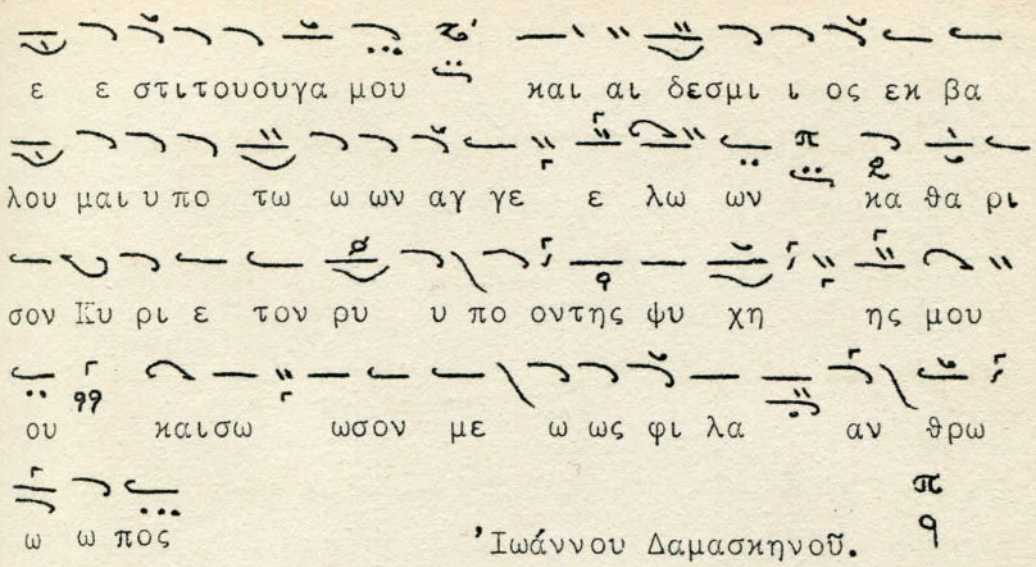 ε ε στιτουουγα μου και αι δεσμι ι ος εκ βα
λου μαι υ πο τω ω ων αγ γε ε λω ων κα θα ρι
σον Κυ ρι ε τον ρυ υ πο οντης ψυ χη ης μου
ου καισω ωσον με ω ως φι λα αν θρω
ω ω πος
'Ιωάννου Δαμασκηνοῦ.